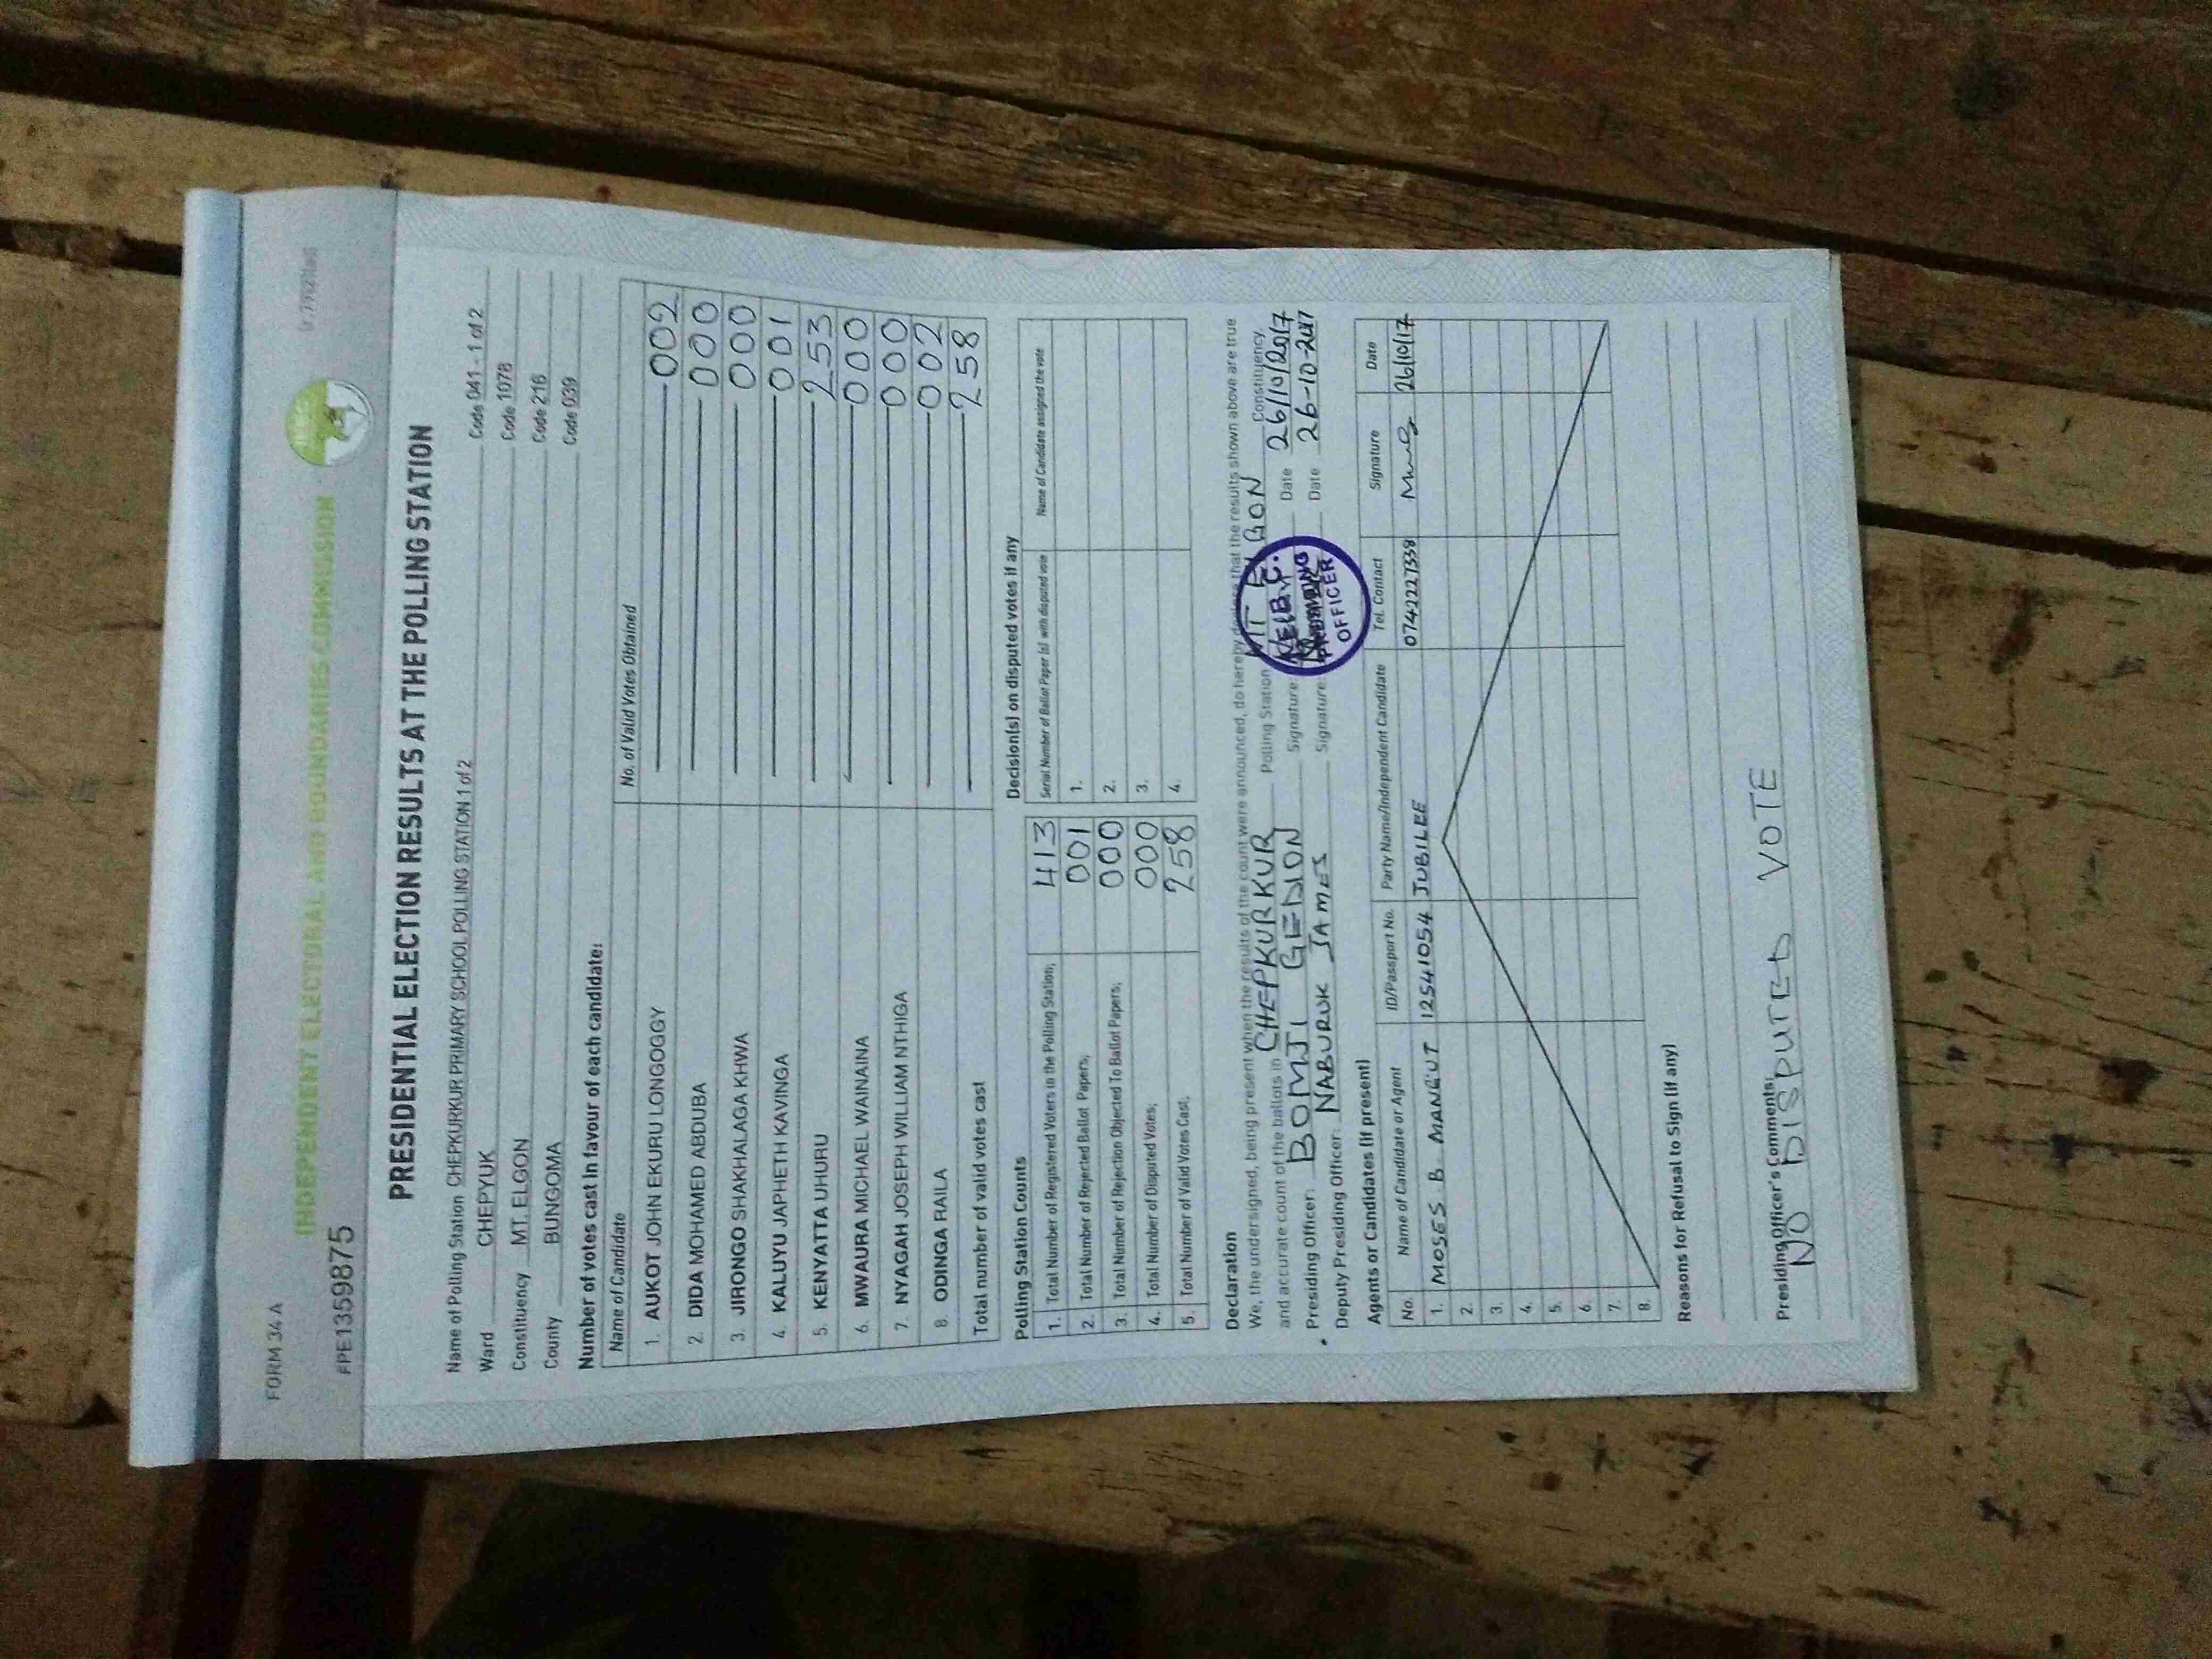 FORM 34 A
INDEPENDENT ELECTORAL AND BOUNDARIES COMMISSION
FPE1359875
PRESIDENTIAL ELECTION RESULTS AT THE POLLING STATION
Name of Polling Station CHEPKURKUR PRIMARY SCHOOL POLLING STATION 1 of 2 Code 041 - 1 of 2
Ward CHEPYUK Code 1078
Constituency MT. ELGON Code 216
County BUNGOMA Code 039
Number of votes cast in favour of each candidate:
Name of Candidate No. of Valid Votes Obtained
1. AUKOT JOHN EKURU LONGOGGY 002
2. DIDA MOHAMED ABDUBA 000
3. JIRONGO SHAKHALAGA KHWA 000
4. KALUYU JAPHETH KAVINGA 001
5. KENYATTA UHURU 253
6. MWAURA MICHAEL WAINAINA 000
7. NYAGAH JOSEPH WILLIAM NTHIGA 000
8. ODINGA RAILA 002
Total number of valid votes cast 258
Polling Station Counts
1. Total Number of Registered Voters in the Polling Station; 413
2. Total Number of Rejected Ballot Papers; 001
3. Total Number of Rejection Objected To Ballot Papers; 000
4. Total Number of Disputed Votes; 000
5. Total Number of Valid Votes Cast; 258
Decision(s) on disputed votes if any
Serial Number of Ballot Paper (s) with disputed vote Name of Candidate assigned the vote
1.
2.
3.
4.
Declaration
We, the undersigned, being present when the results of the count were announced, do hereby declare that the results shown above are true
and accurate count of the ballots in CHEPKURKUR Polling Station MT ELGON Constituency.
Presiding Officer: BOMJI GEDION Signature: Date 26/10/2017
Deputy Presiding Officer: NABURUK JAMES Signature: Date 26-10-2017
OFFICER
Agents or Candidates (if present)
No. Name of Candidate or Agent ID/Passport No. Party Name/Independent Candidate Tel. Contact Signature Date
1. MOSES B. MANGUT 12541054 JUBILEE 0742227338 26/10/17
2.
3.
4.
5.
6.
7.
8.
Reasons for Refusal to Sign (if any)
Presiding Officer's Comments:
NO DISPUTED VOTE